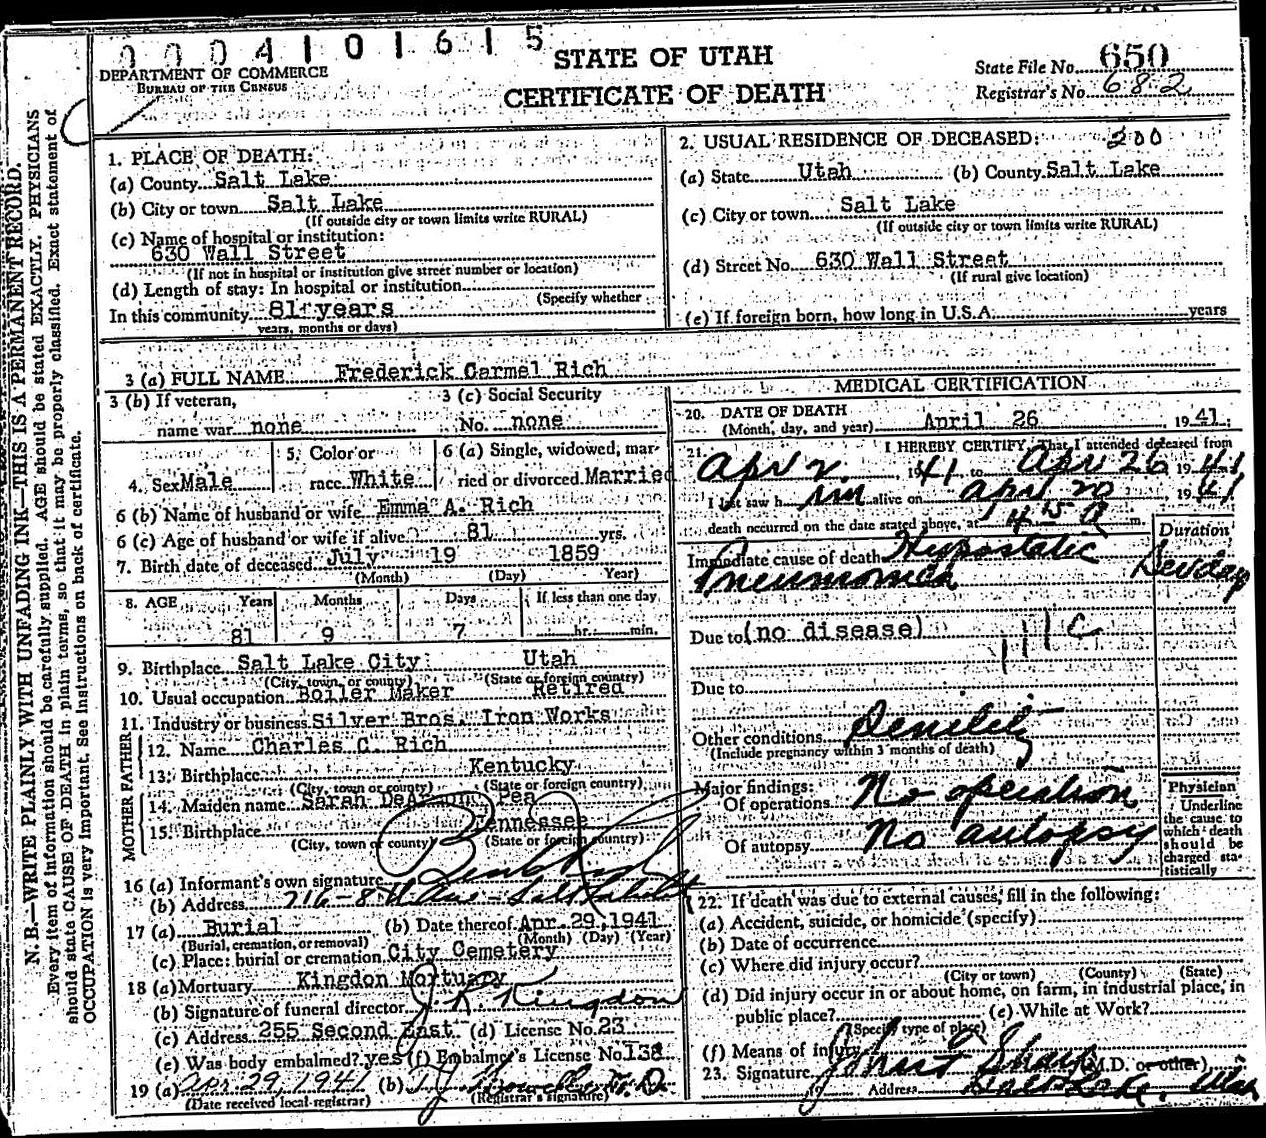 0004101615
STATE OF UTAH
CERTIFICATE OF DEATH
DEPARTMENT OF COMMERCE
BUREAU OF THE CENSUS
State File No. 650
Registrar's No. 682
N. B.—WRITE PLAINLY WITH UNFADING INK—THIS IS A PERMANENT RECORD.
Every item of information should be carefully supplied. AGE should be stated EXACTLY. PHYSICIANS
should state CAUSE OF DEATH in plain terms, so that it may be properly classified. Exact statement of
OCCUPATION is very important. See instructions on back of certificate.
1. PLACE OF DEATH:
(a) County Salt Lake
(b) City or town Salt Lake
(If outside city or town limits write RURAL)
(c) Name of hospital or institution:
630 Wall Street
(If not in hospital or institution give street number or location)
(d) Length of stay: In hospital or institution
(Specify whether
In this community 81 years
years, months or days)
2. USUAL RESIDENCE OF DECEASED: 200
(a) State Utah (b) County Salt Lake
(c) City or town Salt Lake
(If outside city or town limits write RURAL)
(d) Street No. 630 Wall Street
(If rural give location)
(e) If foreign born, how long in U.S.A. years
3 (a) FULL NAME Frederick Carmel Rich
3 (b) If veteran, 3 (c) Social Security
name war none No. none
4. Sex Male 5. Color or race White 6 (a) Single, widowed, married or divorced Married
6 (b) Name of husband or wife Emma A. Rich
6 (c) Age of husband or wife if alive 81 yrs.
7. Birth date of deceased July 19 1859
(Month) (Day) Year)
8. AGE Years Months Days If less than one day
81 9 7 hr. min.
9. Birthplace Salt Lake City Utah
(City, town, or county) (State or foreign country)
10. Usual occupation Boiler Maker Retired
11. Industry or business Silver Bros. Iron Works
FATHER
12. Name Charles C. Rich
13. Birthplace Kentucky
(City, town or county) (State or foreign country)
MOTHER
14. Maiden name Sarah DeArmon Pea
15. Birthplace Tennessee
(City, town or county) (State or foreign country)
16 (a) Informant's own signature
(b) Address 716 - 8th Ave - Salt Lake
17 (a) Burial (b) Date thereof Apr. 29, 1941
(Burial, cremation, or removal) (Month) (Day) (Year)
(c) Place: burial or cremation City Cemetery
18 (a) Mortuary Kingdon Mortuary
(b) Signature of funeral director J. R. Kingdon
(c) Address 255 Second East (d) License No. 23
(e) Was body embalmed? yes (f) Embalmer's License No. 138
19 (a) Apr. 29, 1941 (b)
(Date received local registrar) (Registrar's signature)
MEDICAL CERTIFICATION
20. DATE OF DEATH
(Month, day, and year) April 26, 1941;
21. I HEREBY CERTIFY, That I attended deceased from
Apr 2 1941 to Apr 26 1941
I last saw h im alive on Apr 20, 1941
death occurred on the date stated above, at 4 15 A m.
Duration
Immediate cause of death Hypostatic
Pneumonia
Due to (no disease) 111c
Due to
Other conditions Senility
(Include pregnancy within 3 months of death)
Major findings:
Of operations No operation
Of autopsy No autopsy
Physician
Underline
the cause to
which death
should be
charged sta-
tistically
22. If death was due to external causes, fill in the following:
(a) Accident, suicide, or homicide (specify)
(b) Date of occurrence
(c) Where did injury occur?
(City or town) (County) (State)
(d) Did injury occur in or about home, on farm, in industrial place, in
public place? (e) While at Work?
(Specify type of place)
(f) Means of injury
23. Signature Sharp (M.D. or other)
Address Salt Lake, Utah